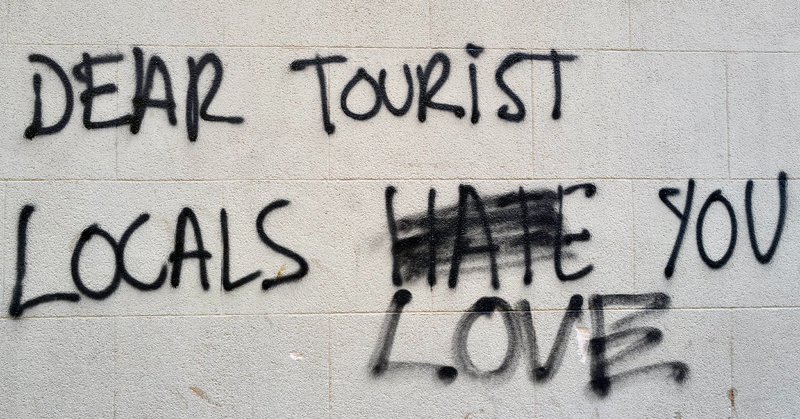 DEAR TOURIST
LOCALS HATE YOU
LOVE